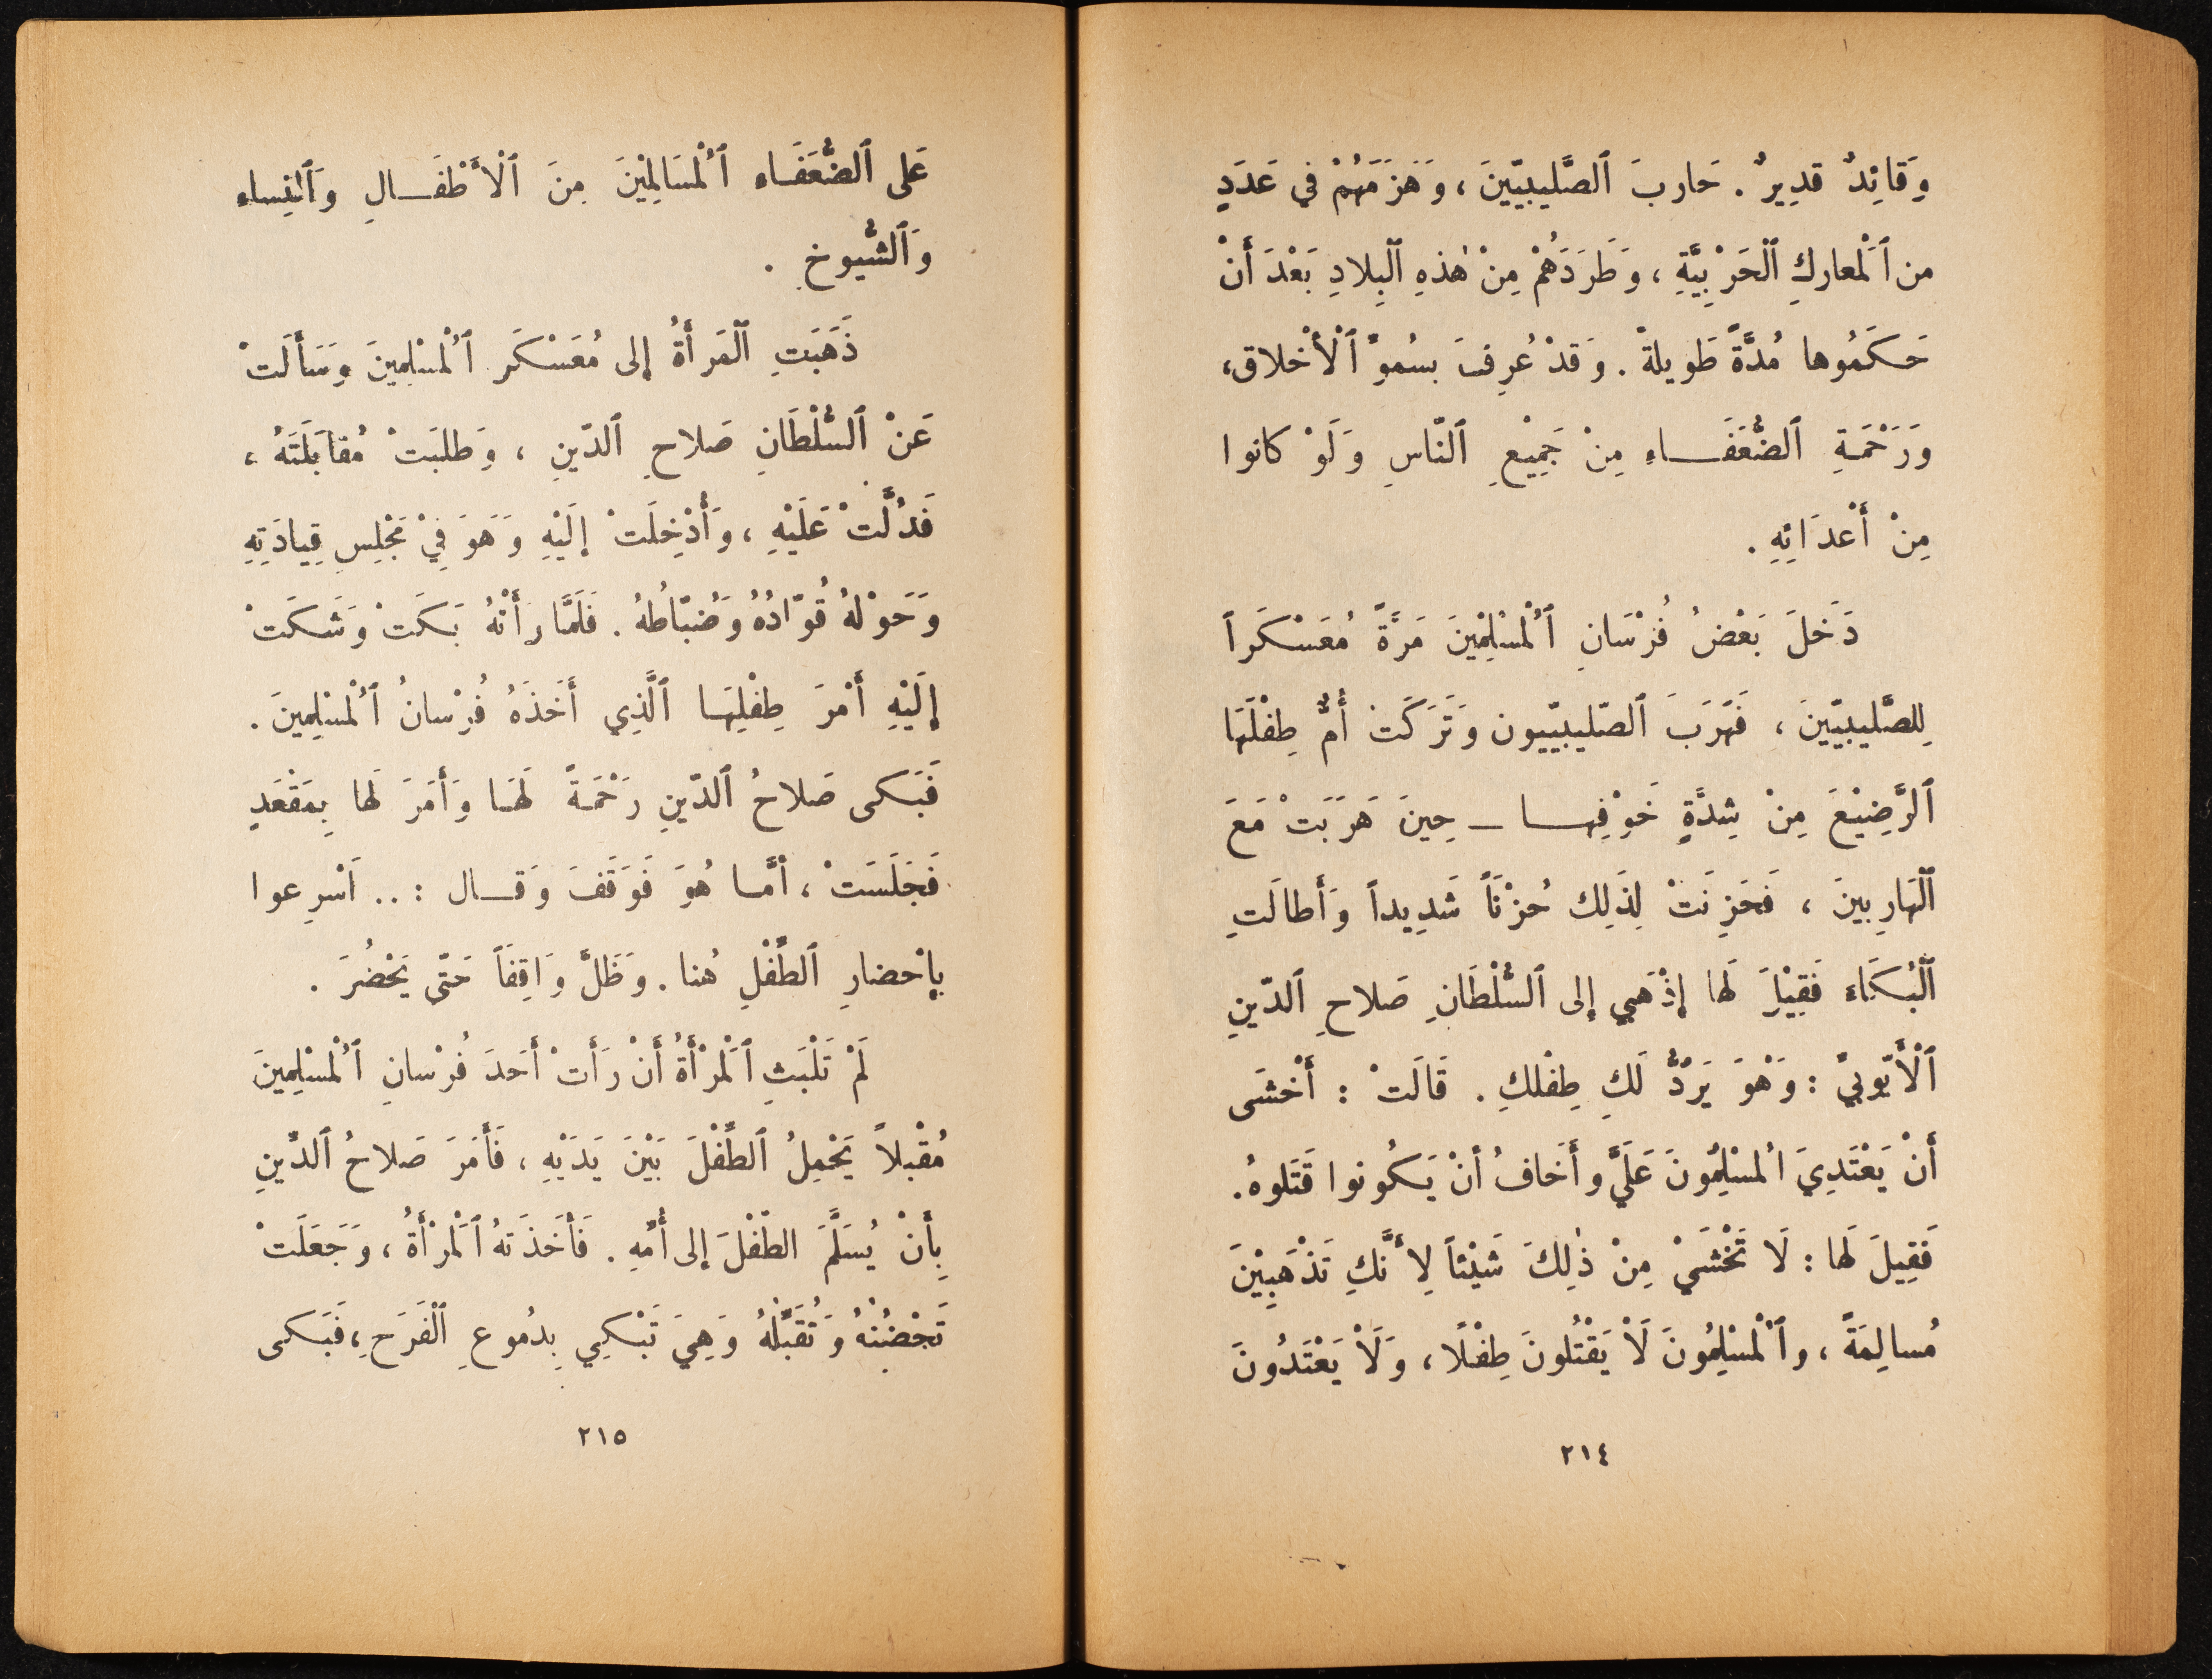 وَقائِدٌ قديرٌ . حَاربَ ٱلصَّليبيّينَ ، وَهَزَمَهُمْ في عَدَدٍ
من ٱلْمعاركِ ٱلْحَرْبِيَّةِ ، وَطَرَدَهُمْ مِنْ هٰذهِ ٱلْبِلادِ بَعْدَ أَنْ
حَكَمُوها مُدَّةً طَويلةً . وَقدْ عُرِفَ بسُموّ ٱلْأَخْلاق،
وَرَحْمَةِ ٱلضُّعَفَـاءِ مِنْ جَمِيْعِ ٱلنّاسِ وَلَوْ كانوا
مِنْ أَعْدَائِهِ .
دَخَلَ بَعْضُ فُرْسَانِ ٱلْمُسْلِمْينَ مَرَّةً مُعَسْكَراً
لِلصَّليبيّينَ ، فَهَرَبَ ٱلصّليبيّيون وَتَرَكَتْ أُمٌّ طِفْلَهَا
ٱلرَّضِيْعَ مِنْ شِدَّةِ خَوْفِهـا ـ حِينَ هَرَبَتْ مَعَ
ٱلْهَارِبينَ ، فَحَزِنَتْ لِذَلِك حُزْنَاً شَدِيداً وَأَطالَتِ
ٱلْبُكَاءَ فَقِيْلَ لَها إذْهَبي إلى ٱلسُّلْطَانِ صَلاحِ ٱلدّينِ
ٱلْأَيّوبيّ : وَهْوَ يَرُدُّ لَكِ طِفْلكِ . قَالَتْ : أَخْشَى
أَنْ يَعْتَدِيَ المسْلِمُونَ عَلَيَّ وأَخافُ أنْ يَكُونوا قَتَلوهُ.
فَقِيلَ لَها : لَا تَخْشَيْ مِنْ ذٰلِكَ شَيْئاً لِأَنَّكِ تَذْهَبِيْنَ
مُسالِمَةً ، وٱلْمسْلِمُونَ لَاْ يَقْتُلونَ طِفْلًا ، وَلَاْ يَعْتَدُونَ
٢١٤
عَلى ٱلضُّعَفَـاءِ ٱلْمُسَالِمْينَ مِنَ ٱلْأَطْفَـالِ وَٱلنِساء
وَٱلشُّيوخِ .
ذَهَبَتِ ٱلْمَرأَةُ إلى مُعَسْكَر ٱلْمُسْلِمينَ وَسَأَلَتْ
عَنْ ٱلسُّلْطَانِ صَلاحِ ٱلدّينِ ، وَطلبَتْ مُقابَلَتَهُ ،
فَدُلَّتْ عَلَيْهِ ، وَأُدْخِلَتْ إلَيْهِ وَهَوَ فِيْ مَجْلِسِ قِيادَتِهِ
وَحَوْلهُ قُوّادُهُ وَضُبّاطُهُ . فَلَمَّا رَأَتْهُ بَكَتْ وَشَكَتْ
إِلَيْهِ أَمْرَ طِفْلِهَـا ٱلَّذِي أَخَذَهُ فُرْسانُ ٱلْمُسْلِمِينَ .
فَبَـكى صَلاحُ ٱلدّينِ رَحْمَةً لَهَـا وَأَمَرَ لَها بِمَقْعَدٍ
فَجَلَسَتْ ، أمَّـا هُوَ فَوَقَفَ وَقـال : .. اَسْرِعوا
بِإحْضارِ ٱلطّفْلِ هُنا . وَظَلَّ وَاقِفَاً حَتّى يَحْضُرَ .
لَمْ تَلْبَثِ ٱلْمَرْأَةُ أَنْ رَأَتْ أَحَدَ فُرْسانِ ٱلْمُسْلِمِينَ
مُقْبلاً يَحْمِلُ ٱلطّفْلَ بَيْنَ يَدَيْهِ ، فَأَمَرَ صَلاحُ ٱلدّينِ
بِأَنْ يُسَلَّمَ الطّفْلَ إلى أُمّهِ . فَأَخَذَتهُ ٱلْمَرْأَةُ ، وَجَعَلَتْ
تَحْضُنهُ وَتُقَبّلُهُ وَهِيَ تَبْكِي بِدُموعِ ٱلْفَرَحِ ، فَبَكى
٢١٥